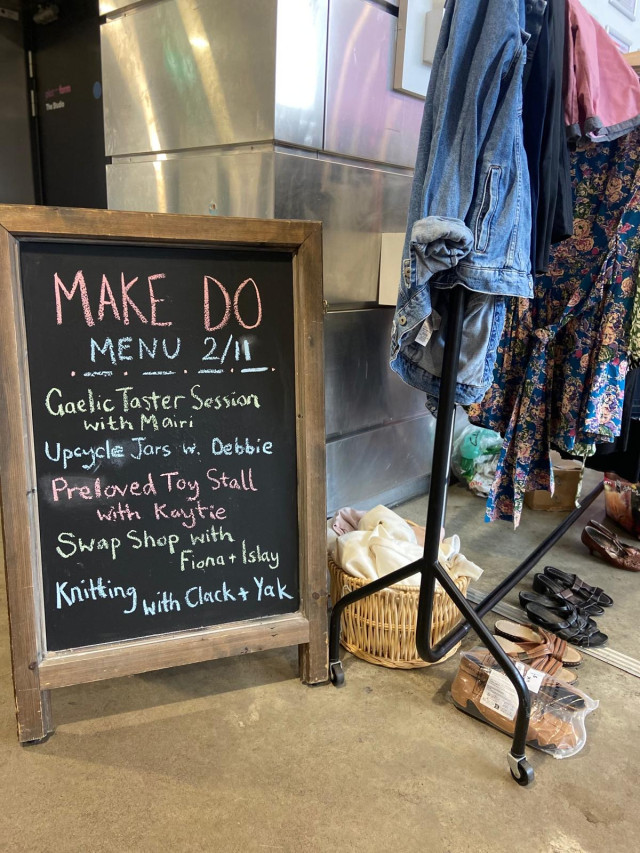 The Studio
MAKE DO
MENU 2/11
Gaelic Taster Session
with Mairi
Upcycle Jars w. Debbie
Preloved Toy Stall
with Kaytie
Swap Shop with
Fiona + Islay
Knitting with Clack + Yak